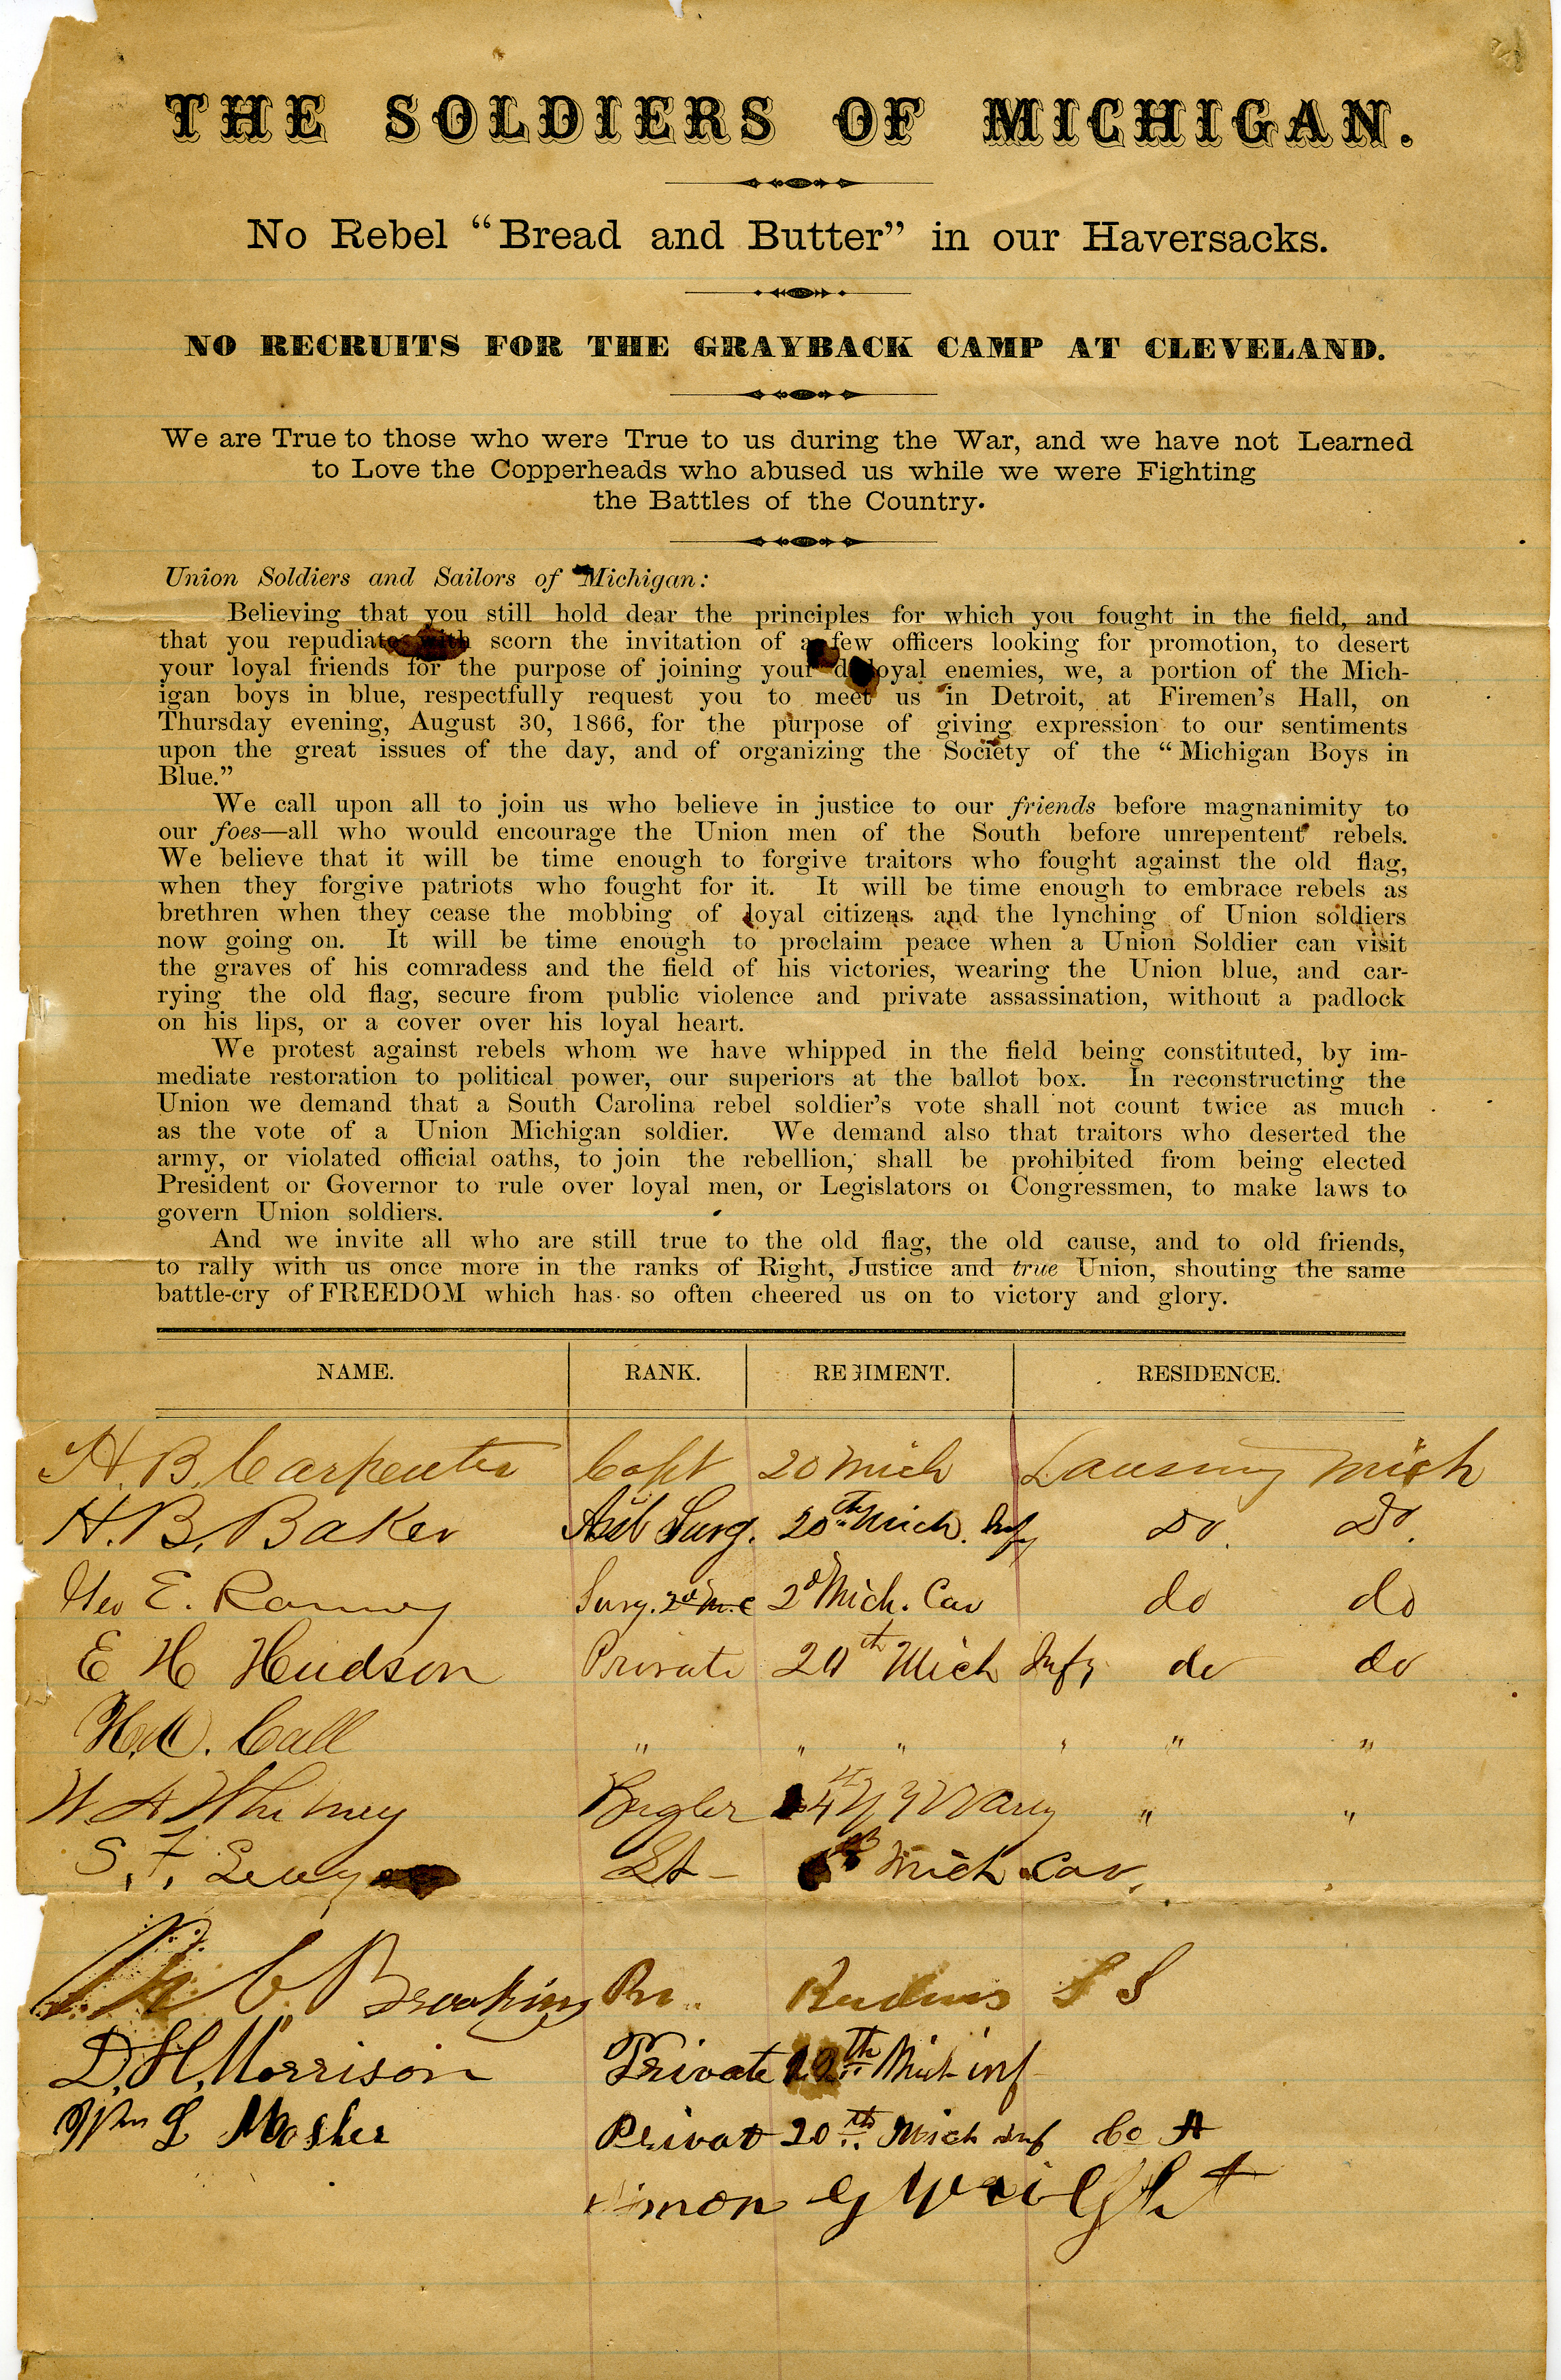 THE SOLDIERS OF MICHIGAN.
No Rebel “Bread and Butter” in our Haversacks.
NO RECRUITS FOR THE GRAYBACK CAMP AT CLEVELAND.
We are True to those who were True to us during the War, and we have not Learned
to Love the Copperheads who abused us while we were Fighting
the Battles of the Country.
Union Soldiers and Sailors of Michigan:
Believing that you still hold dear the principles for which you fought in the field, and
that you repudiate with scorn the invitation of a few officers looking for promotion, to desert
your loyal friends for the purpose of joining your disloyal enemies, we, a portion of the Mich-
igan boys in blue, respectfully request you to meet us in Detroit, at Firemen’s Hall, on
Thursday evening, August 30, 1866, for the purpose of giving expression to our sentiments
upon the great issues of the day, and of organizing the Society of the “Michigan Boys in
Blue.”
We call upon all to join us who believe in justice to our friends before magnanimity to
our foes—all who would encourage the Union men of the South before unrepentent rebels.
We believe that it will be time enough to forgive traitors who fought against the old flag,
when they forgive patriots who fought for it. It will be time enough to embrace rebels as
brethren when they cease the mobbing of loyal citizens and the lynching of Union soldiers
now going on. It will be time enough to proclaim peace when a Union Soldier can visit
the graves of his comradess and the field of his victories, wearing the Union blue, and car-
rying the old flag, secure from public violence and private assassination, without a padlock
on his lips, or a cover over his loyal heart.
We protest against rebels whom we have whipped in the field being constituted, by im-
mediate restoration to political power, our superiors at the ballot box. In reconstructing the
Union we demand that a South Carolina rebel soldier’s vote shall not count twice as much
as the vote of a Union Michigan soldier. We demand also that traitors who deserted the
army, or violated official oaths, to join the rebellion, shall be prohibited from being elected
President or Governor to rule over loyal men, or Legislators or Congressmen, to make laws to
govern Union soldiers.
And we invite all who are still true to the old flag, the old cause, and to old friends,
to rally with us once more in the ranks of Right, Justice and true Union, shouting the same
battle-cry of FREEDOM which has so often cheered us on to victory and glory.
NAME. RANK. REGIMENT. RESIDENCE.
H. B. Carpenter Capt 20 Mich Lansing Mich
H. B. Baker Asst Surg. 20th Mich. Infy Do. Do.
Geo E. Ranney Surg. 2d M.C 2d Mich. Cav do do
E H Hudson Private 20th Mich Infy do do
Call " " " " " "
W A Whitney Bugler " "
S. F. Lt - Mich Cav.
C. Brooking S S
D. H. Morrison Private 12th Mich inf
Wm L Mosher Privat 20th Mich Inf Co A
Simon G Wright